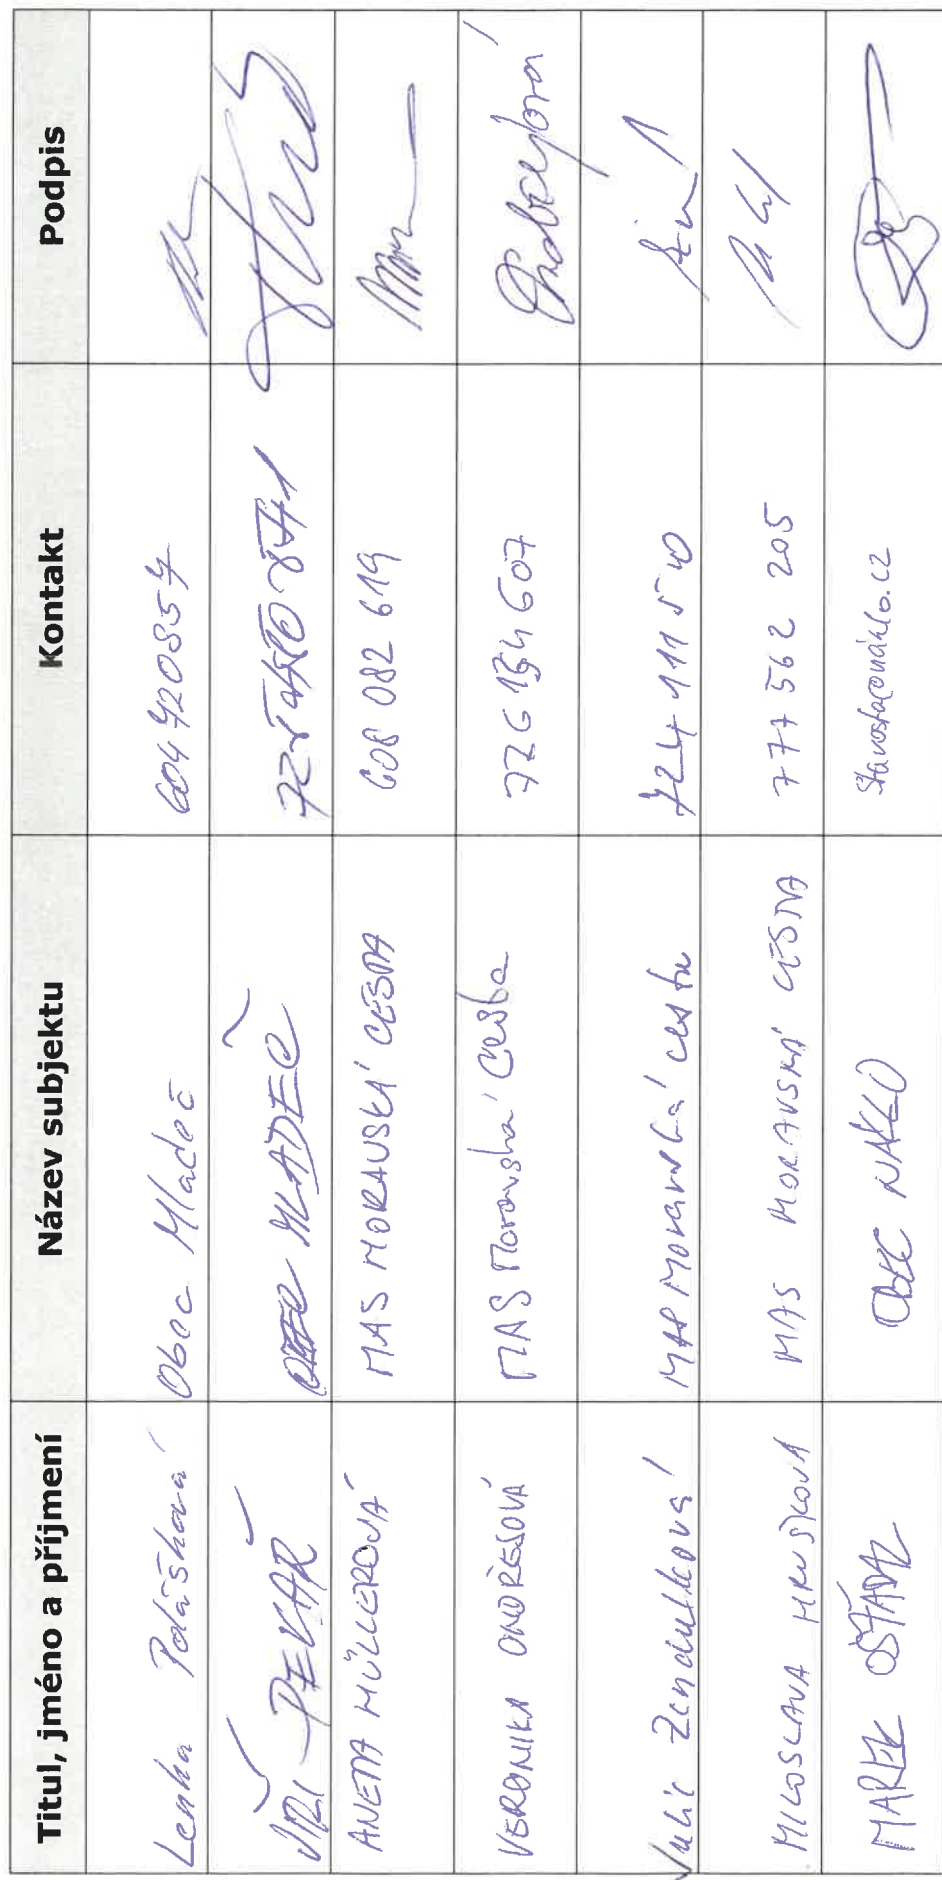 Titul, jméno a příjmení Název subjektu Kontakt Podpis
Lenka Polášková Obec Mladeč 604420857
JIŘÍ PEKAŘ OBEC MLADEČ
ANETA MÜLLEROVÁ MAS MORAVSKÁ CESTA 608 082 619
VERONIKA ONDŘEJOVÁ MAS Moravská cesta 726 134 607
Zendulková MAS Moravská cesta 724 111 540
MILOSLAVA HRUŠKOVÁ MAS MORAVSKÁ CESTA 777 562 205
MAREK OŠŤÁDAL OBEC NÁKLO starosta@naklo.cz